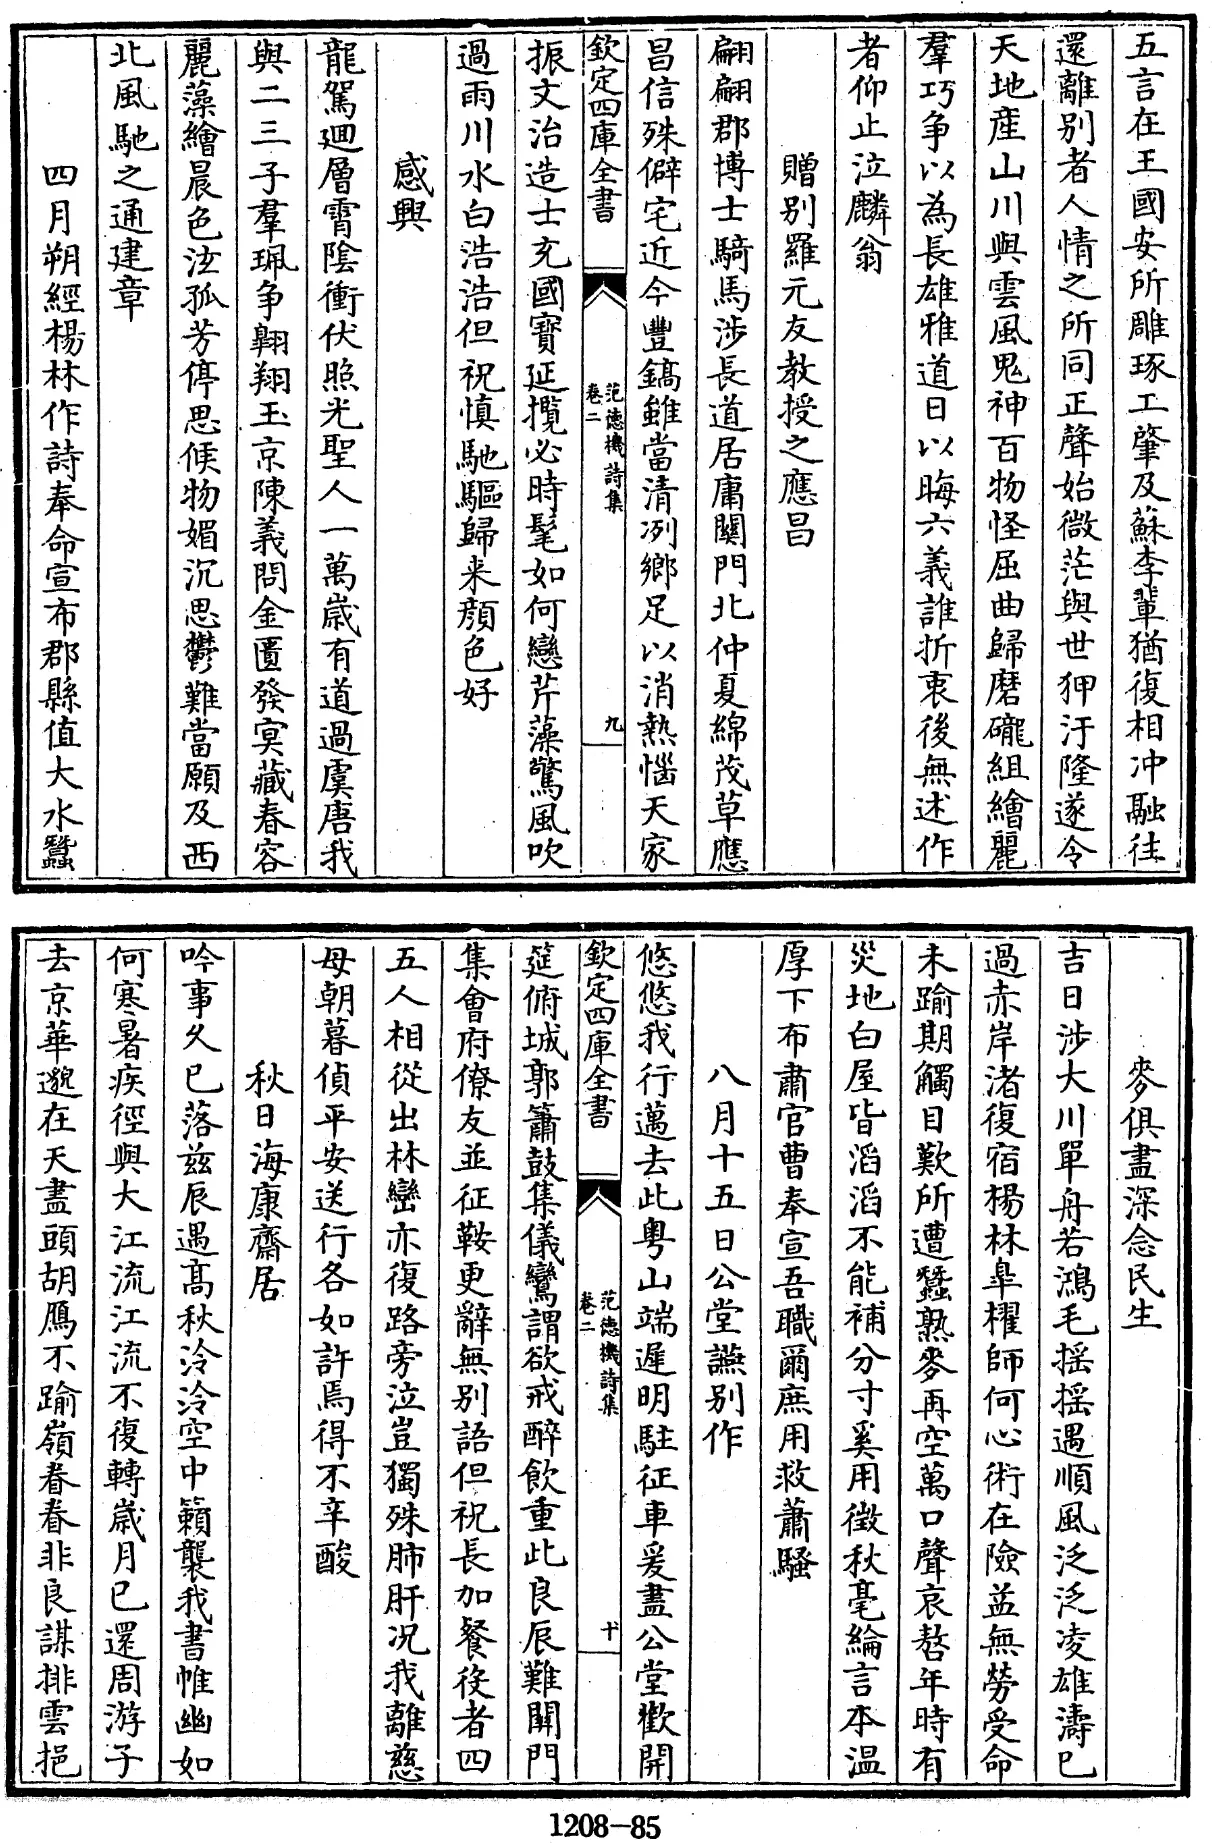 五言在王國安所雕琢工肇及蘇李輩猶復相冲融往
還離別者人情之所同正聲始微茫與世狎汙隆遂令
天地產山川與雲風鬼神百物怪屈曲歸磨礲組繪麗
羣巧争以為長雄雅道日以晦六義誰折衷後無述作
者仰止泣麟翁
贈別羅元友教授之應昌
翩翩郡博士騎馬涉長道居庸關門北仲夏綿茂草應
昌信殊僻宅近今豐鎬雖當清冽鄉足以消熱惱天家
欽定四庫全書
范德機詩集
卷二
九
振文治造士充國寳延攬必時髦如何戀芹藻驚風吹
過雨川水白浩浩但祝慎馳驅歸来顔色好
感興
龍駕迴層霄陰衝伏照光聖人一萬歲有道過虞唐我
與二三子羣珮争翺翔玉京陳義問金匱發冥藏春容
麗藻繪晨色泫孤芳停思候物媚沉思鬱難當願及西
北風馳之通建章
四月朔經楊林作詩奉命宣布郡縣值大水蠶
麥俱盡深念民生
吉日涉大川單舟若鴻毛摇摇遇順風泛泛凌雄濤已
過赤岸渚復宿楊林臯櫂師何心術在險益無勞受命
未踰期觸目歎所遭蠶熟麥再空萬口聲哀嗸年時有
災地白屋皆滔滔不能補分寸奚用徵秋毫綸言本温
厚下布肅官曹奉宣吾職爾庶用救蕭騷
八月十五日公堂讌別作
悠悠我行邁去此粤山端遲明駐征車爰盡公堂歡開
欽定四庫全書
范德機詩集
卷二
十
筵俯城郭簫鼓集儀鸞謂欲戒醉飲重此良辰難闢門
集會府僚友並征鞍更辭無別語但祝長加餐役者四
五人相從出林巒亦復路旁泣豈獨殊肺肝况我離慈
母朝暮偵平安送行各如許焉得不辛酸
秋日海康齋居
吟事久已落兹辰遇髙秋泠泠空中籟襲我書帷幽如
何寒暑疾徑與大江流江流不復轉歲月已還周游子
去京華邈在天盡頭胡鴈不踰嶺眷眷非良謀排雲挹
1208-85